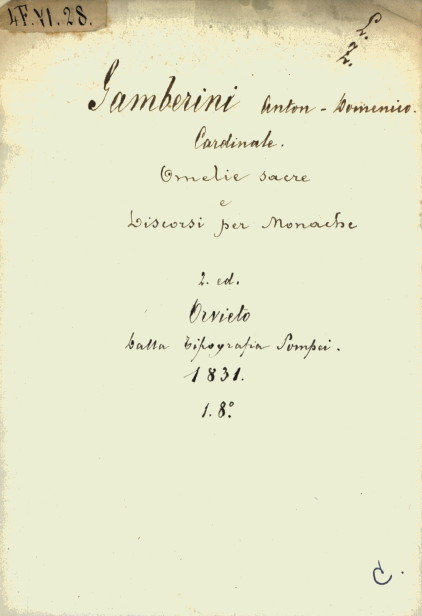 4F.VI.28.
Gamberini Anton-Domenico.
Cardinale.
Omelie sacre
e
Discorsi per Monache
2. ed.
Orvieto
Dalla Tipografia Pompei.
1831.
1. 8º.
C.